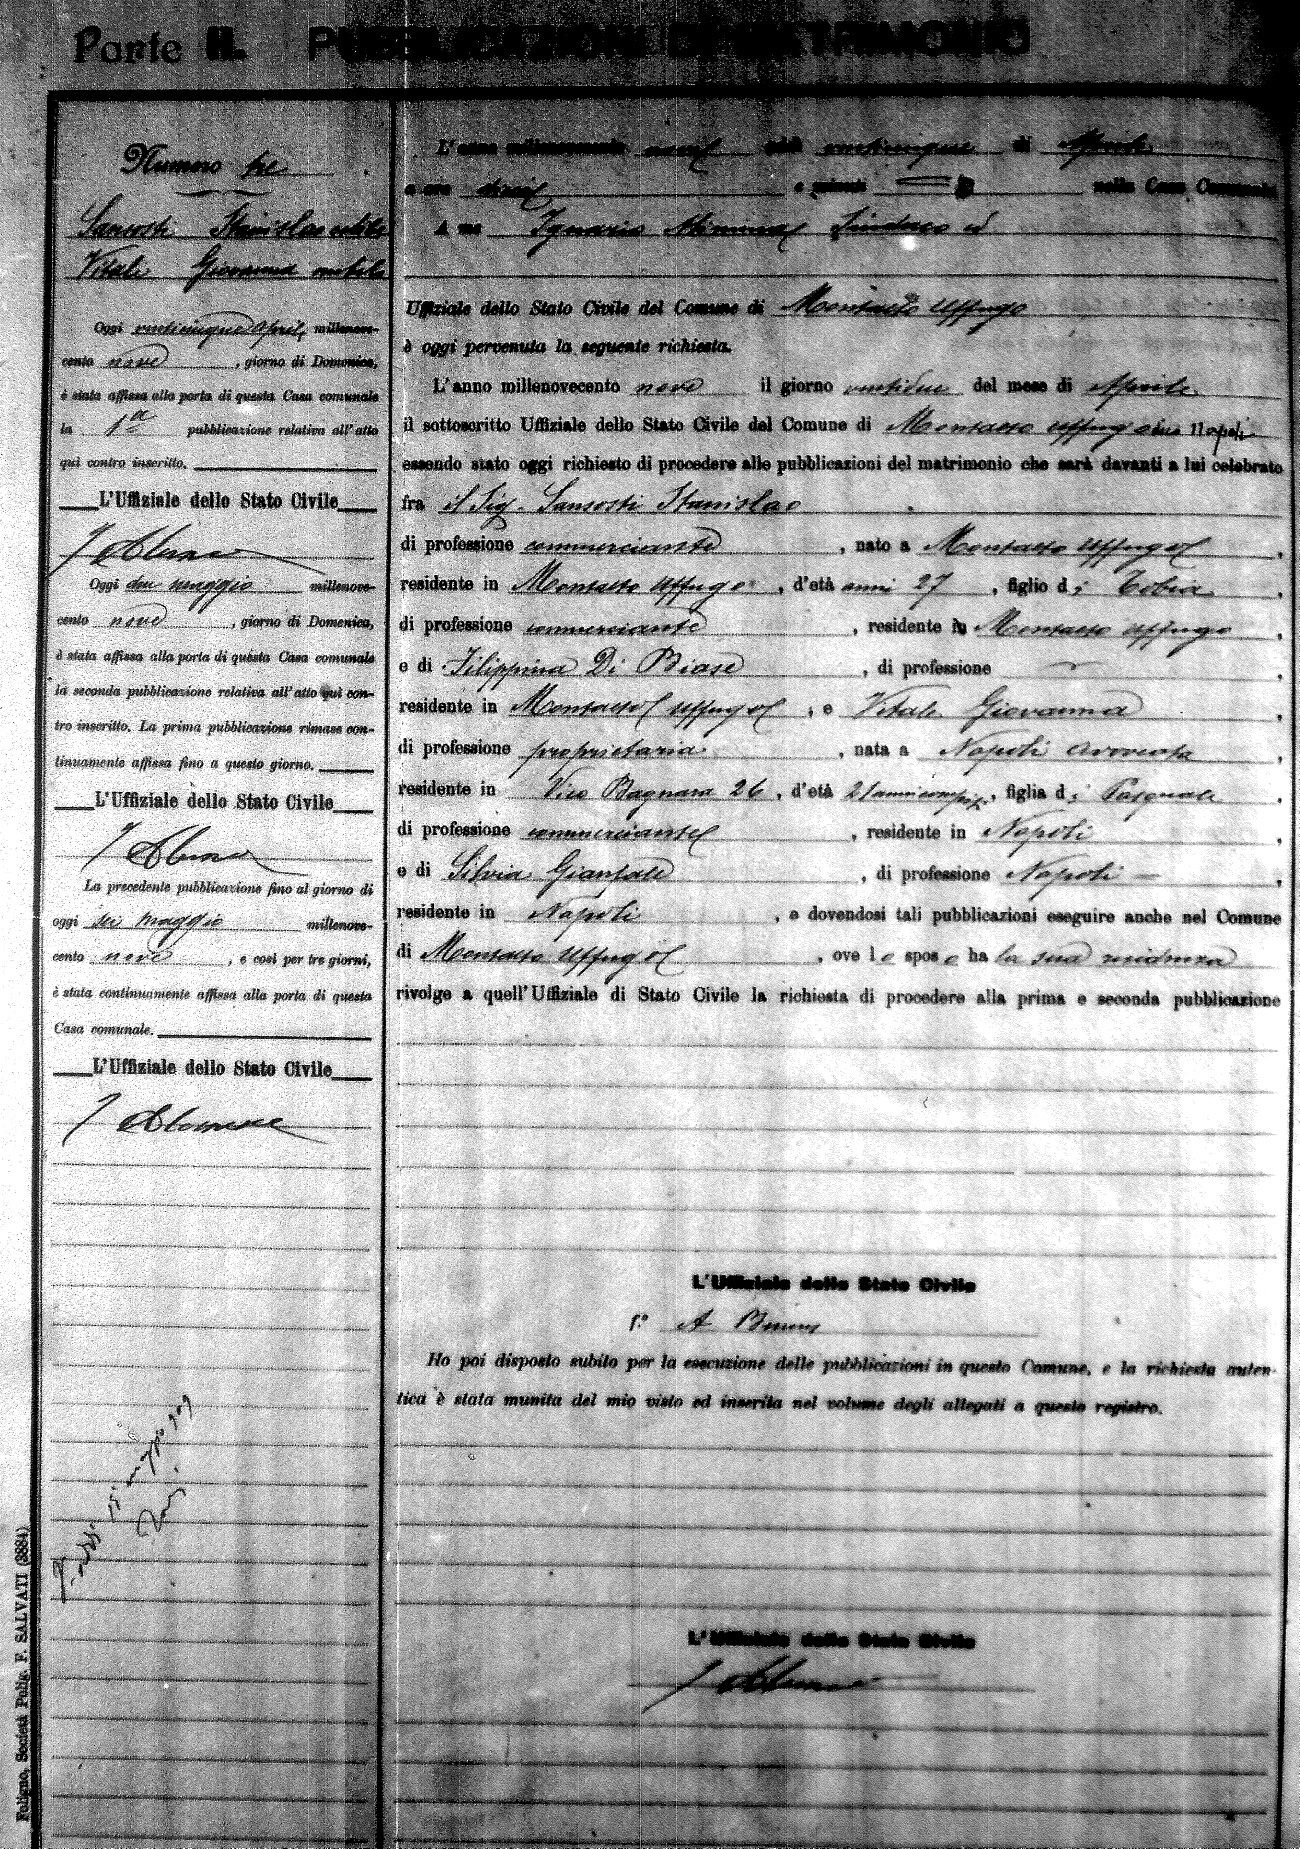 Parte II. PUBBLICAZIONI DI MATRIMONIO
Numero tre
Sansosti Stanislao celibe
Vitale Giovanna nubile
Oggi venticinque Aprile millenove-
cento nove, giorno di Domenica,
è stata affissa alla porta di questa Casa comunale
la 1a pubblicazione relativa all'atto
qui contro inscritto.
L'Uffiziale dello Stato Civile
Oggi due maggio millenove-
cento nove, giorno di Domenica,
è stata affissa alla porta di questa Casa comunale
la seconda pubblicazione relativa all'atto qui con-
tro inscritto. La prima pubblicazione rimase con-
tinuamente affissa fino a questo giorno.
L'Uffiziale dello Stato Civile
La precedente pubblicazione fino al giorno di
oggi sei maggio millenove-
cento nove, e così per tre giorni,
è stata continuamente affissa alla porta di questa
Casa comunale.
L'Uffiziale dello Stato Civile
Foligno, Società Polig. F. SALVATI (3884)
L'anno millenovecento nove addì venticinque di Aprile
a ore dieci e minuti nella Casa Comunale
A me Ignazio Sindaco ed
Uffiziale dello Stato Civile del Comune di Montalto Uffugo
è oggi pervenuta la seguente richiesta.
L'anno millenovecento nove il giorno ventidue del mese di Aprile
il sottoscritto Uffiziale dello Stato Civile del Comune di Montalto Uffugo Napoli
essendo stato oggi richiesto di procedere alle pubblicazioni del matrimonio che sarà davanti a lui celebrato
fra il Sig. Sansosti Stanislao
di professione commerciante, nato a Montalto Uffugo,
residente in Montalto Uffugo, d'età anni 27, figlio di Tobia,
di professione commerciante, residente in Montalto Uffugo,
e di Filippina Di Biase, di professione —,
residente in Montalto Uffugo, e Vitale Giovanna,
di professione proprietaria, nata a Napoli Avvocata,
residente in Vico Bagnara 26, d'età 21 anni compiti, figlia di Pasquale,
di professione commerciante, residente in Napoli,
e di Silvia Gianfale, di professione Napoli —,
residente in Napoli, e dovendosi tali pubblicazioni eseguire anche nel Comune
di Montalto Uffugo, ove lo sposo ha la sua residenza
rivolge a quell'Uffiziale di Stato Civile la richiesta di procedere alla prima e seconda pubblicazione
L'Uffiziale dello Stato Civile
Ho poi disposto subito per la esecuzione delle pubblicazioni in questo Comune, e la richiesta auten-
tica è stata munita del mio visto ed inserita nel volume degli allegati a questo registro.
L'Uffiziale dello Stato Civile